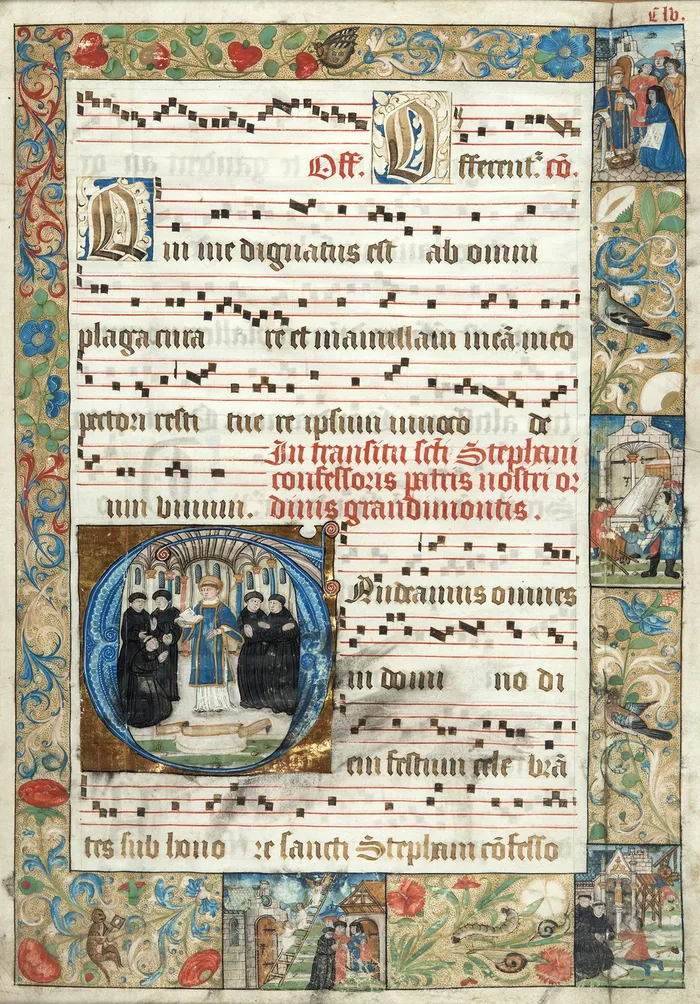 Clv.
Off. Offerent̃. cõ.
Qui me dignatus est ab omni
plaga cura re et mamillam meã meo
pectori resti tue re ipsum inuoco de
um viuum. In transitu scti Stephani
confessoris patris nostri or
dinis grandimontis.
Gaudeamus omnes
in domi no di
em festum cele brã
tes sub hono re sancti Stephani cõfesso